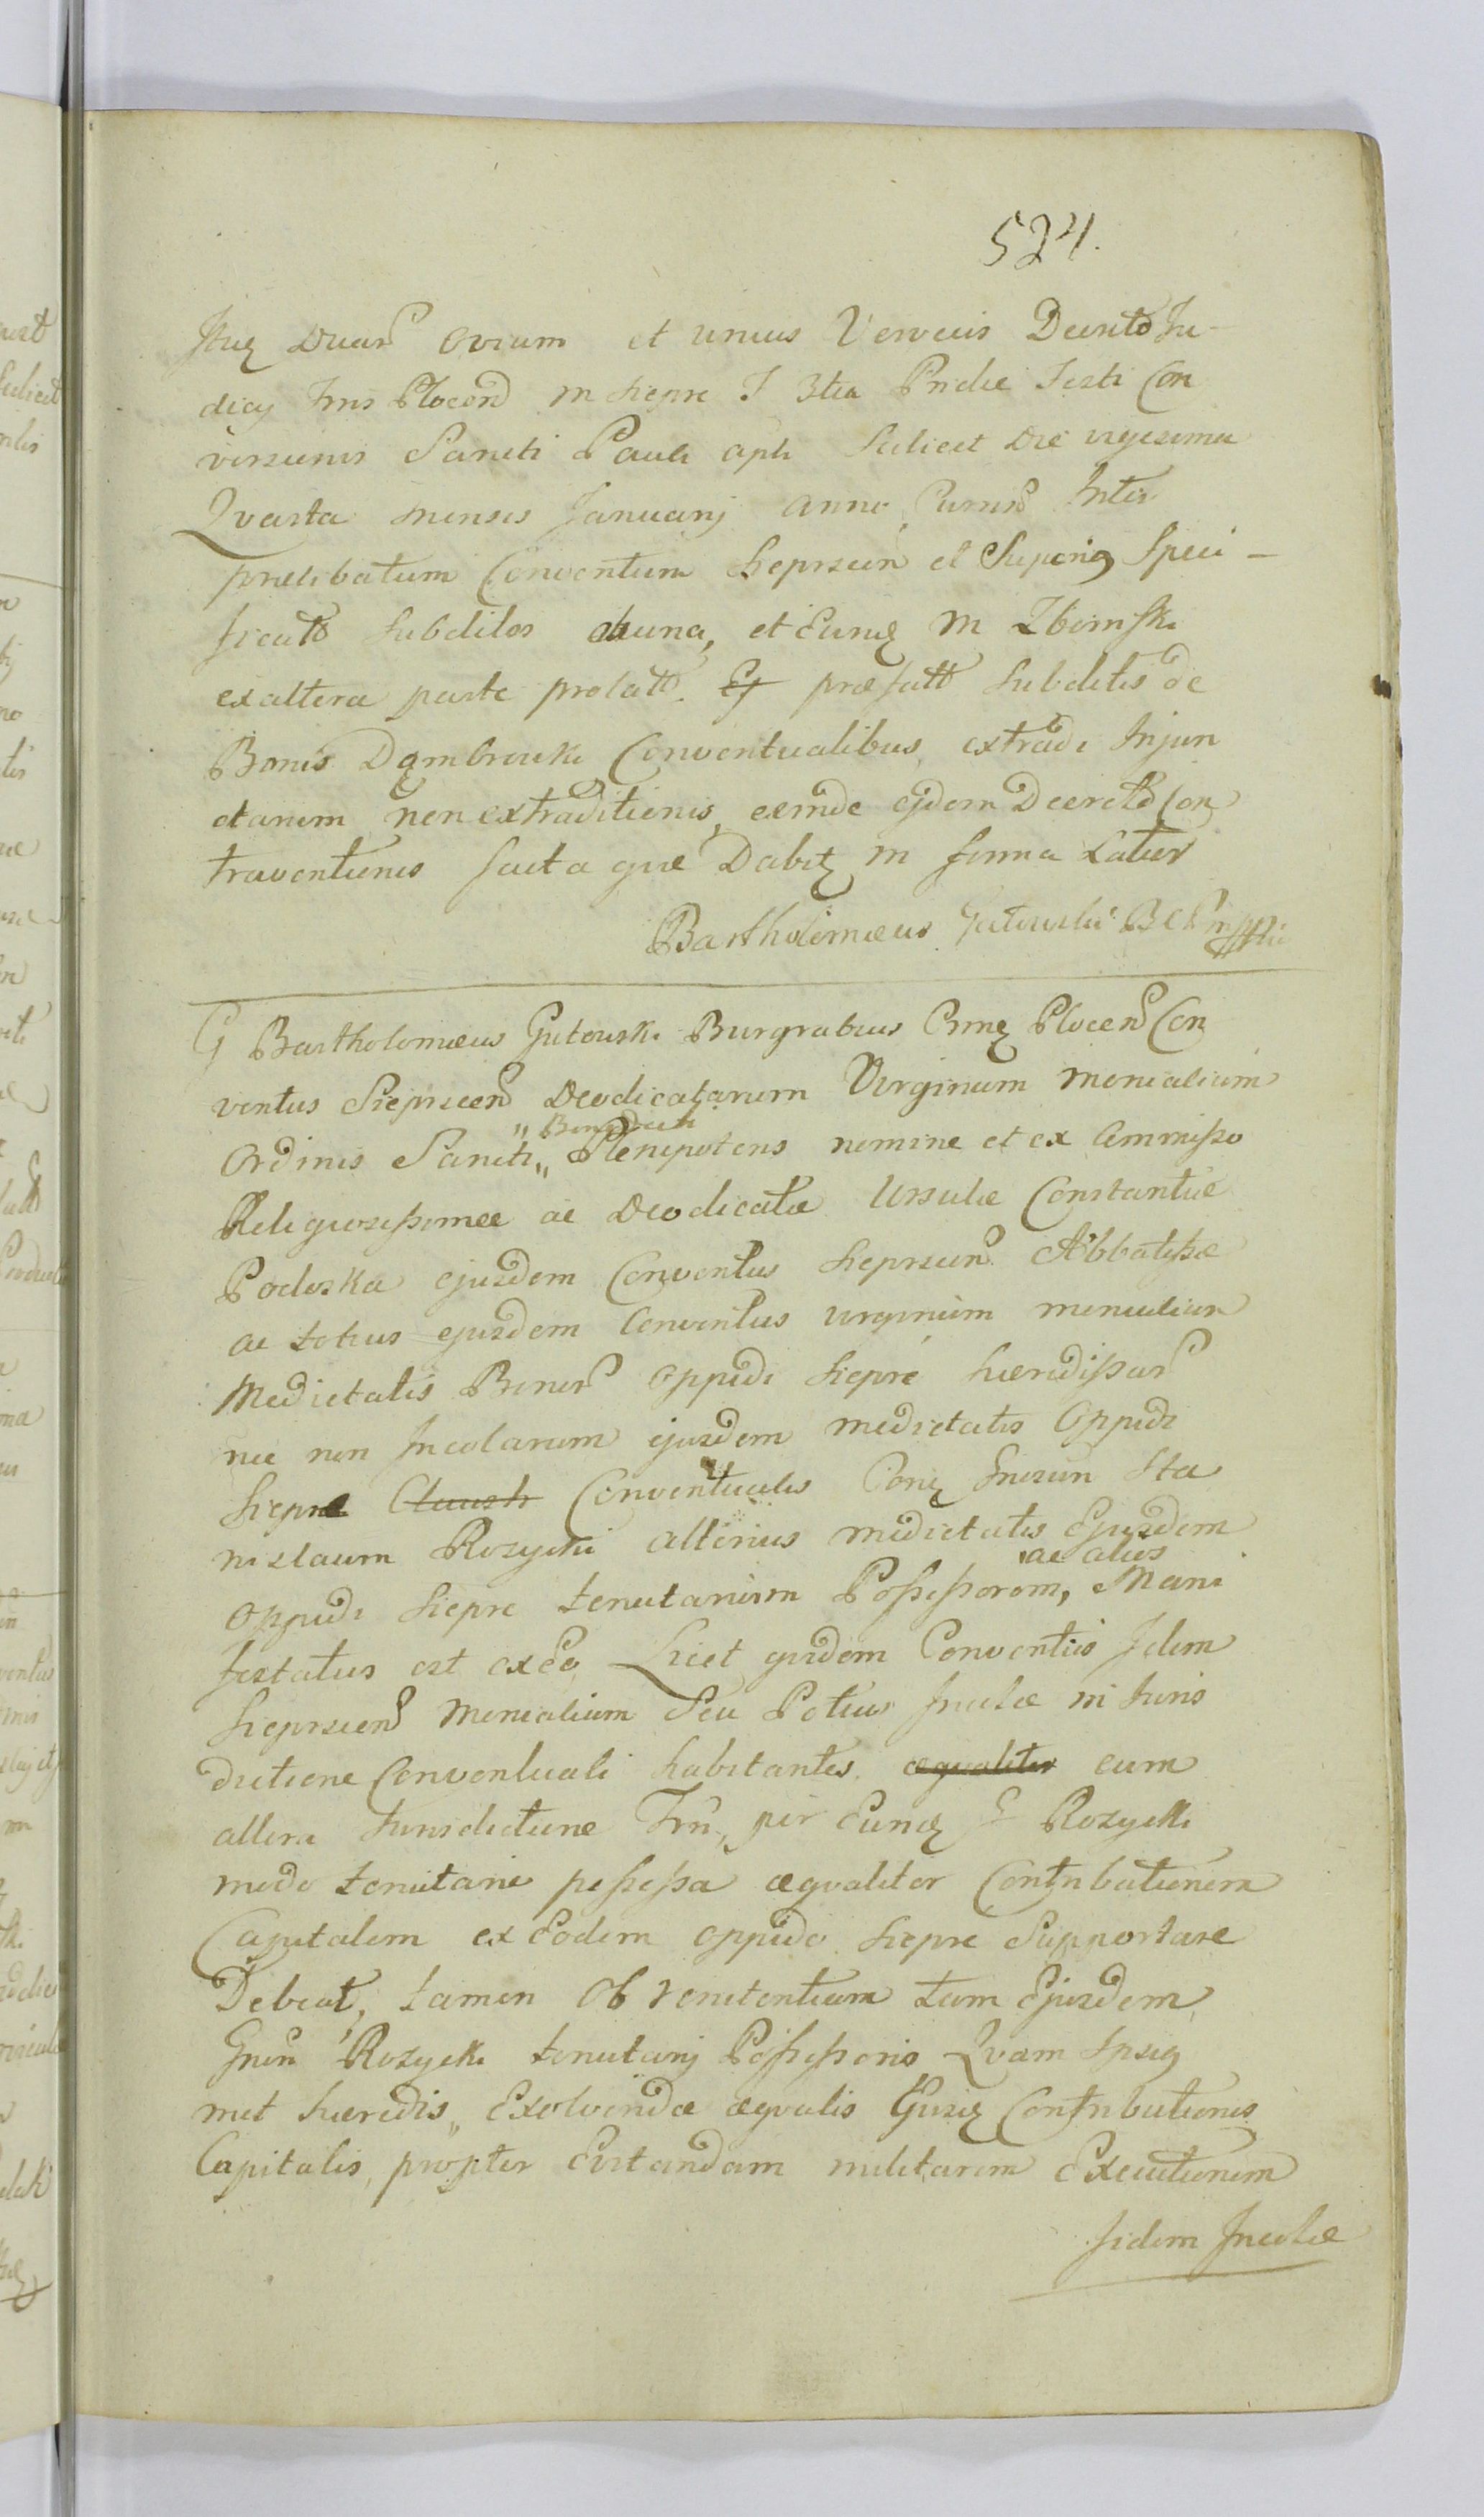 524.
duar ovium et unius Vervecis Decreto Ju-
dicy Plocen in Siepre F 3tia Pridie Festi Con
versionis Sancti Pauli apli Scilicet Die vigesima
Qvarta mensis Januarij anno Curren Inter
praelibatum Conventum Sieprscen et Superius Speci-
ficatt Subditos ab una, et Eund M Zboinski
ex altera parte prolatt. Ej praefatt Subditis de
Bonis Dąmbrowki Conventualibus extradi Injun
ctarum non extraditionis, exinde ejdem Decretto Con
traventionis facta que Dabit in forma Latior
Bartholomaeus Gutowski BCP mppria
G Bartholomaeus Gutowski Burgrabius Plocen Con
ventus Sieprscen Deodicatarum Virginum monialium
Ordinis Sancti "Benedicti" Plenipotens nomine et ex Commisso
Religiosissimae ac Deodicatae Ursulae Constantiae
Podoska ejusdem Conventus Sieprscen Abbatissae
ac totius ejusdem Conventus virginum monialium
Medietatis Bonor Oppidi Siepre haeredissar
nec non Incolarum ejusdem medietatis Oppidi
Siepre Claustr Conventualis Gnerosum Sta
nislaum Rozycki alterius medietatis Ejusdem
Oppidi Siepre tenutarium Possessorem, ac alios Mani
festatus est ex eo Licet quidem Conventus Idem
Sieprscen Monialium Seu Potius Incolae in Juris
dictione Conventuali habitantes aequaliter cum
altera Jurisdictione per Eund G Rozycki
modo tenutario possessa aequaliter Contributionem
Capitalem ex Eodem oppido Siepre Supportare
Debeat, tamen Ob renitentiam tam Ejusdem
Gnen Rozycki tenutarij Possessoris Qvam Ipsius
met haeredis, Exolvendae aequalis Contributionis
Capitalis, propter Evitandam militarem Executionem
Iidem Incolae